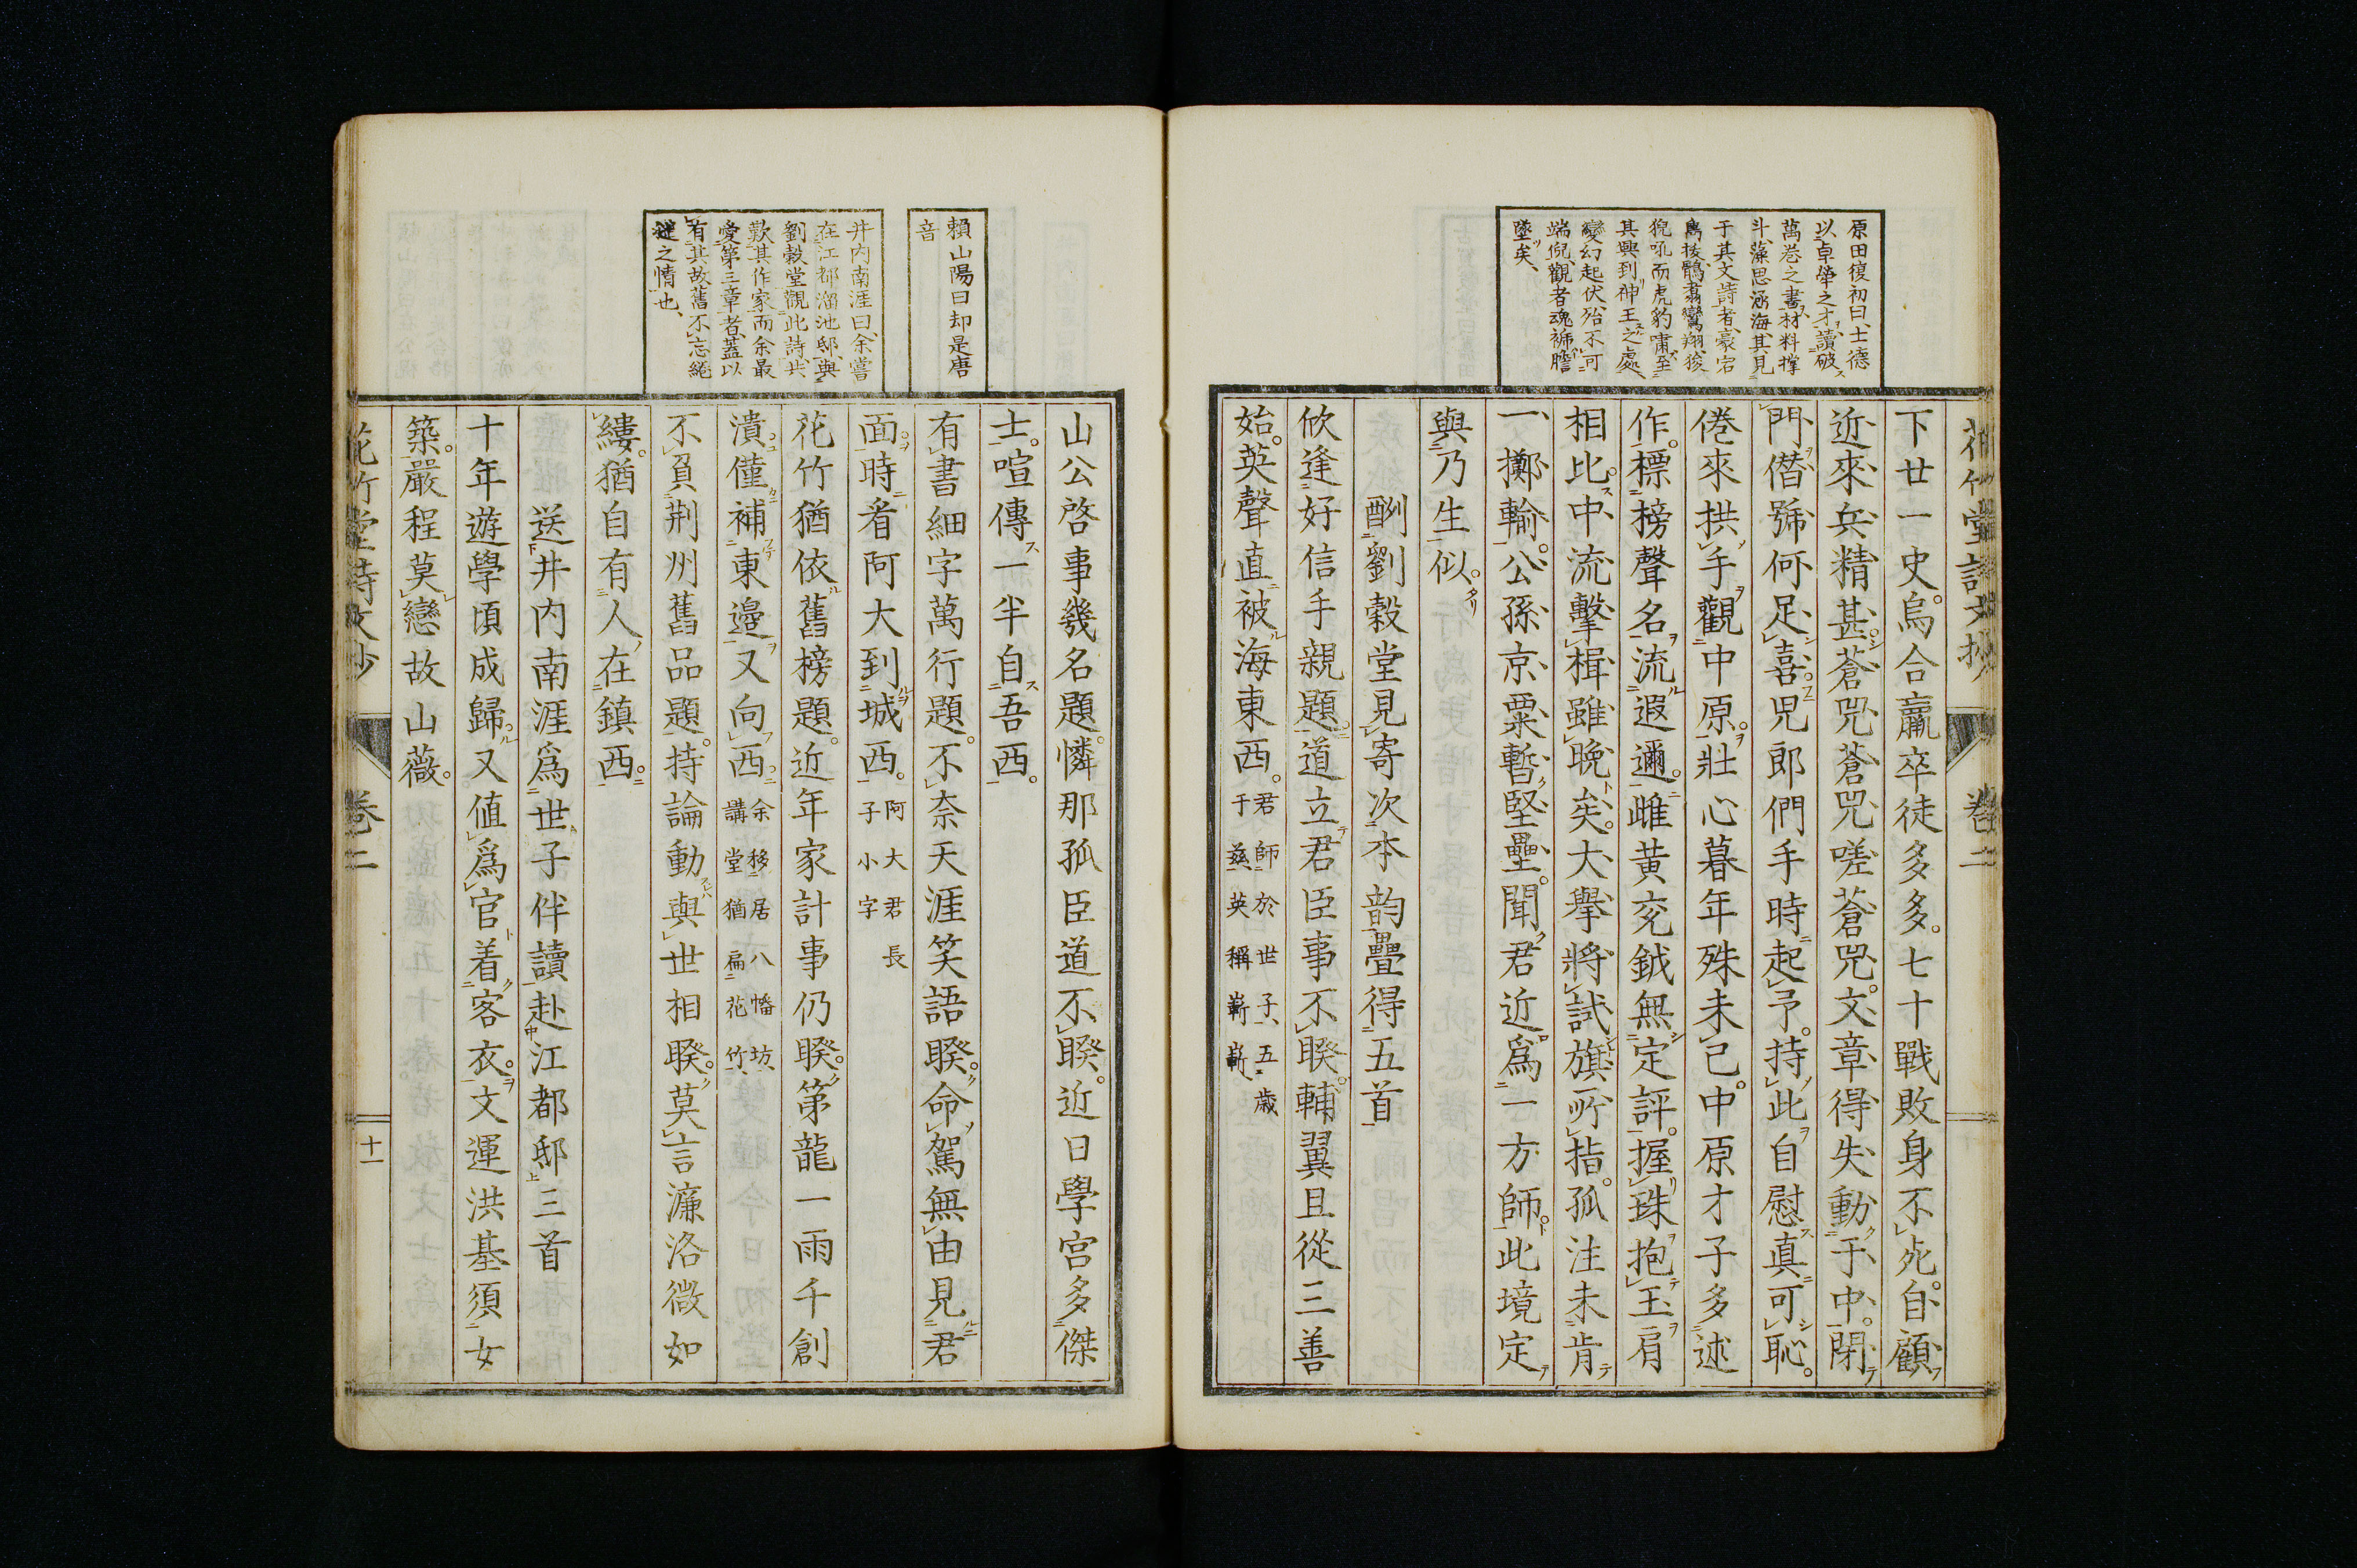 原田復初曰、士德
以卓犖之才、讀破
萬卷之書、材料撑
斗、藻思涵海、其見
于其文詩者、豪宕
雋拔、鶻翥鸞翔、狻
猊吼而虎豹嘯、至
其興到神王之處、
變幻起伏、殆不可
端倪、觀者魂褫膽
墜矣、
花竹堂詩文抄
卷二
下廿一史。烏合羸卒徒多多。七十戰敗身不死。自顧
近來兵精甚。蒼兕蒼兕嗟蒼兕。文章得失動于中。閉
門僭號何足喜。兕郎們手時起予。持此自慰真可恥。
倦來拱手觀中原。壯心暮年殊未已。中原才子多述
作。標榜聲名流遐邇。雌黃交鉞無定評。握珠抱玉肩
相比。中流擊楫雖晚矣。大擧將試旗所指。孤注未肯
一擲輸。公孫京粟暫堅壘。聞君近爲一方師。此境定
與乃生似。
酬劉穀堂見寄次本韵疊得五首
欣逢好信手親題。道立君臣事不睽。輔翼且從三善
始。英聲直被海東西。君師於世子、五歲
于茲、英稱嶄嶄、
賴山陽曰却是唐
音
井内南涯曰、余嘗
在江都溜池邸、與
劉穀堂觀此詩、共
歎其作家、而余最
愛第三章者、蓋以
有其故舊不忘繾
綣之情也、
山公啓事幾名題。憐那孤臣道不睽。近日學宮多傑
士。喧傳一半自吾西。
有書細字萬行題。不奈天涯笑語睽。命駕無由見君
面。時看阿大到城西。阿大君長
子小字
花竹猶依舊榜題。近年家計事仍睽。第龍一雨千創
潰。僅補東邊又向西。余移居八幡坊、
講堂猶扁花竹、
不負荆州舊品題。持論動與世相睽。莫言濂洛微如
縷。猶自有人在鎮西。
送井内南涯爲世子伴讀赴江都邸三首
十年遊學頃成歸。又値爲官着客衣。文運洪基須女
築。嚴程莫戀故山薇。
花竹堂詩文抄
卷二
十一